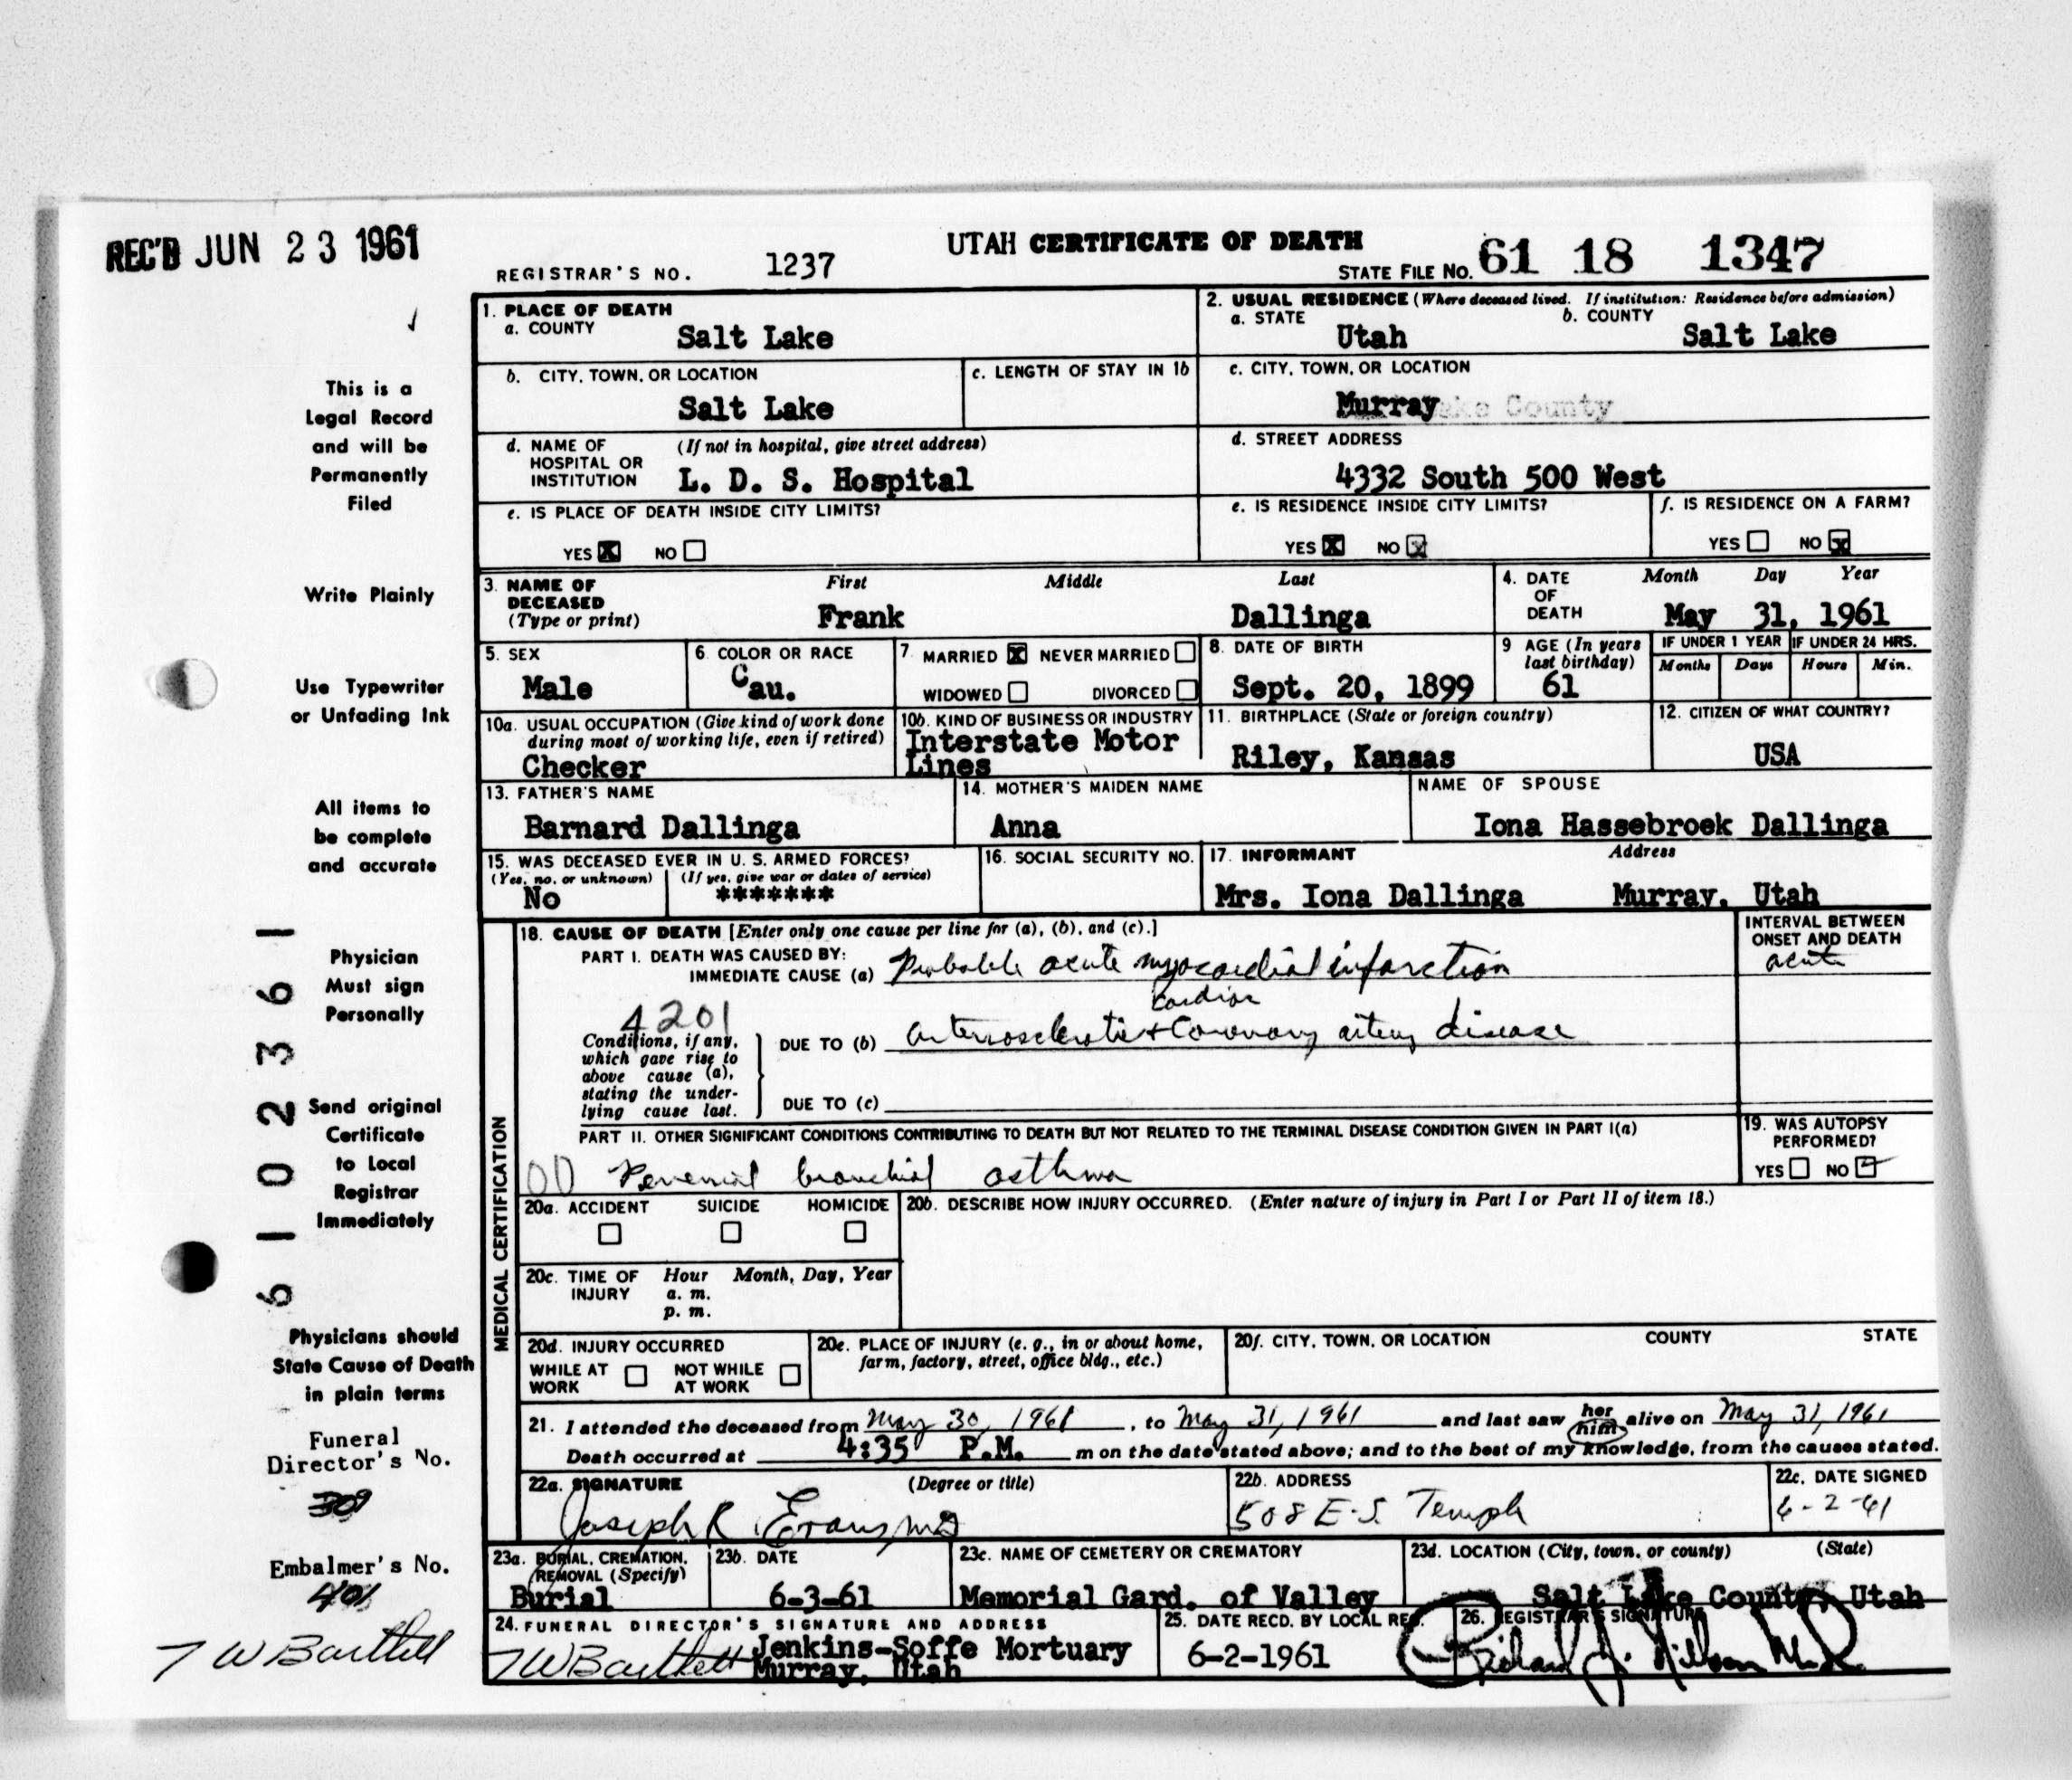 REC'D JUN 23 1961
UTAH CERTIFICATE OF DEATH
REGISTRAR'S NO. 1237
STATE FILE NO. 61 18 1347
This is a
Legal Record
and will be
Permanently
Filed
Write Plainly
Use Typewriter
or Unfading Ink
All items to
be complete
and accurate
Physician
Must sign
Personally
Send original
Certificate
to Local
Registrar
Immediately
Physicians should
State Cause of Death
in plain terms
Funeral
Director's No.
309
Embalmer's No.
401
T W Bartlett
61 02361
1. PLACE OF DEATH
a. COUNTY
Salt Lake
2. USUAL RESIDENCE (Where deceased lived. If institution: Residence before admission)
a. STATE Utah
b. COUNTY Salt Lake
b. CITY, TOWN, OR LOCATION
Salt Lake
c. LENGTH OF STAY IN 1b
c. CITY, TOWN, OR LOCATION
Murray County
d. NAME OF HOSPITAL OR INSTITUTION (If not in hospital, give street address)
L. D. S. Hospital
d. STREET ADDRESS
4332 South 500 West
e. IS PLACE OF DEATH INSIDE CITY LIMITS?
YES X NO
e. IS RESIDENCE INSIDE CITY LIMITS?
YES X NO X
f. IS RESIDENCE ON A FARM?
YES NO X
3. NAME OF DECEASED (Type or print)
First Middle Last
Frank Dallinga
4. DATE OF DEATH
Month Day Year
May 31, 1961
5. SEX
Male
6. COLOR OR RACE
Cau.
7. MARRIED X NEVER MARRIED
WIDOWED DIVORCED
8. DATE OF BIRTH
Sept. 20, 1899
9 AGE (In years last birthday)
61
IF UNDER 1 YEAR
Months Days
IF UNDER 24 HRS.
Hours Min.
10a. USUAL OCCUPATION (Give kind of work done during most of working life, even if retired)
Checker
10b. KIND OF BUSINESS OR INDUSTRY
Interstate Motor
Lines
11. BIRTHPLACE (State or foreign country)
Riley, Kansas
12. CITIZEN OF WHAT COUNTRY?
USA
13. FATHER'S NAME
Barnard Dallinga
14. MOTHER'S MAIDEN NAME
Anna
NAME OF SPOUSE
Iona Hassebroek Dallinga
15. WAS DECEASED EVER IN U. S. ARMED FORCES?
(Yes, no, or unknown) (If yes, give war or dates of service)
No *******
16. SOCIAL SECURITY NO.
17. INFORMANT Address
Mrs. Iona Dallinga Murray, Utah
MEDICAL CERTIFICATION
18. CAUSE OF DEATH [Enter only one cause per line for (a), (b), and (c).]
INTERVAL BETWEEN
ONSET AND DEATH
PART I. DEATH WAS CAUSED BY:
IMMEDIATE CAUSE (a) Probable acute myocardial infarction acute
4201
Conditions, if any,
which gave rise to
above cause (a),
stating the under-
lying cause last.
cardiac
DUE TO (b) Arteriosclerotic + Coronary artery disease
DUE TO (c)
PART II. OTHER SIGNIFICANT CONDITIONS CONTRIBUTING TO DEATH BUT NOT RELATED TO THE TERMINAL DISEASE CONDITION GIVEN IN PART I(a)
00 Perennial bronchial asthma
19. WAS AUTOPSY
PERFORMED?
YES NO ✓
20a. ACCIDENT SUICIDE HOMICIDE
20b. DESCRIBE HOW INJURY OCCURRED. (Enter nature of injury in Part I or Part II of item 18.)
20c. TIME OF INJURY
Hour Month, Day, Year
a. m.
p. m.
20d. INJURY OCCURRED
WHILE AT WORK NOT WHILE AT WORK
20e. PLACE OF INJURY (e. g., in or about home, farm, factory, street, office bldg., etc.)
20f. CITY, TOWN, OR LOCATION COUNTY STATE
21. I attended the deceased from May 30, 1961, to May 31, 1961 and last saw her him alive on May 31, 1961
Death occurred at 4:35 P.M. m on the date stated above; and to the best of my knowledge, from the causes stated.
22a. SIGNATURE (Degree or title)
Joseph R Evans, MD
22b. ADDRESS
508 E. S. Temple
22c. DATE SIGNED
6-2-61
23a. BURIAL, CREMATION, REMOVAL (Specify)
Burial
23b. DATE
6-3-61
23c. NAME OF CEMETERY OR CREMATORY
Memorial Gard. of Valley
23d. LOCATION (City, town, or county) (State)
Salt Lake County, Utah
24. FUNERAL DIRECTOR'S SIGNATURE AND ADDRESS
T W Bartlett Jenkins-Soffe Mortuary
Murray, Utah
25. DATE RECD. BY LOCAL REG.
6-2-1961
26. REGISTRAR'S SIGNATURE